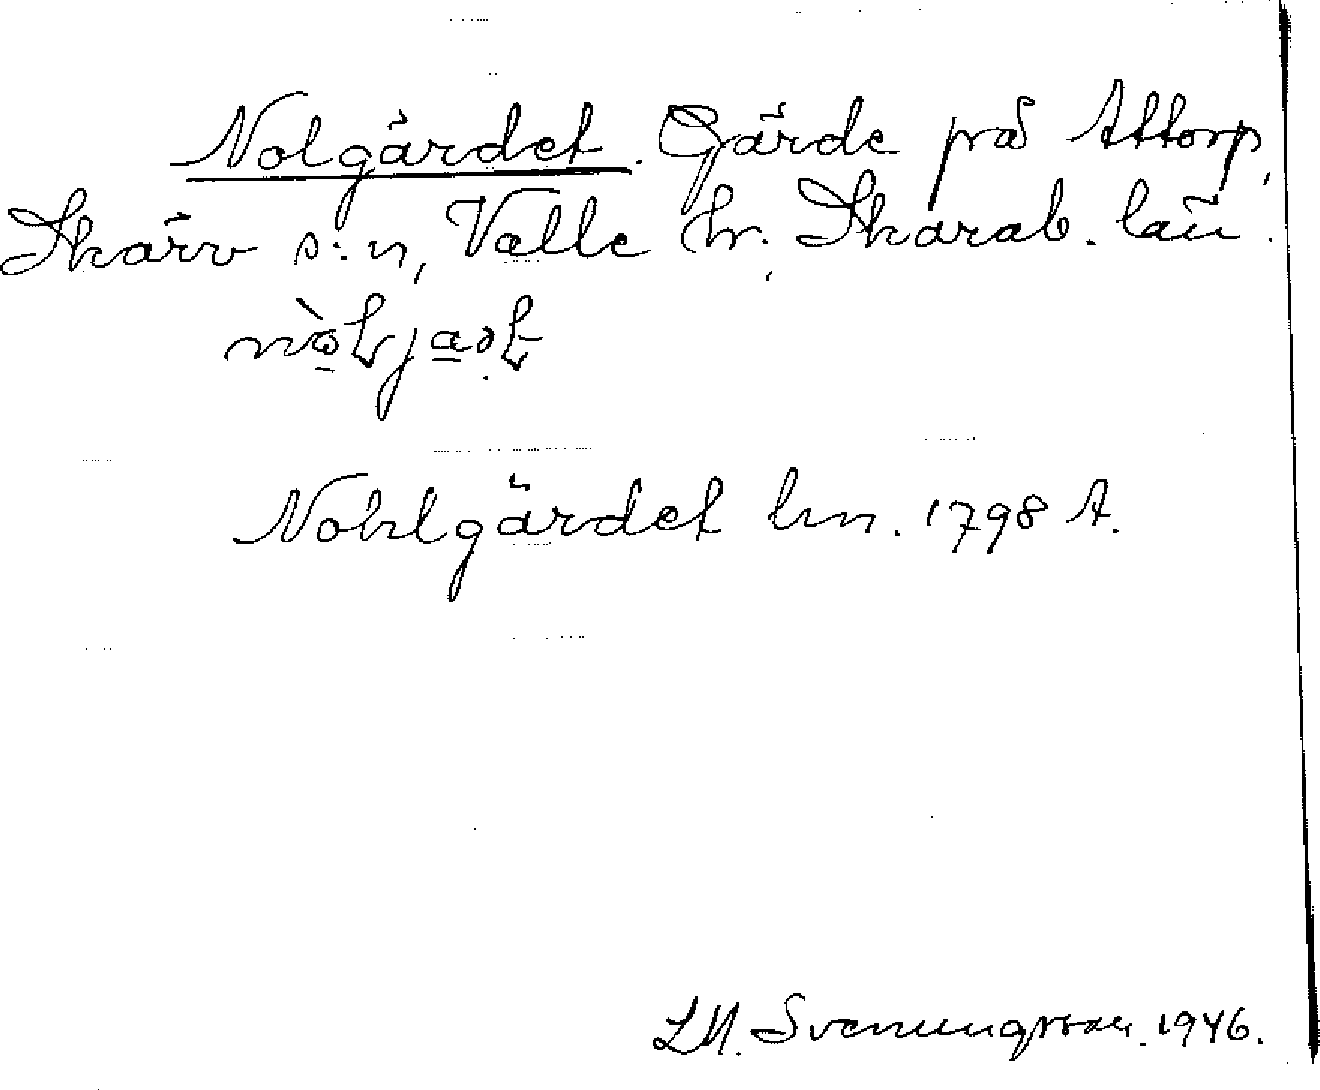 Nolgärdet. Gärde på Attorp,
Skärv s:n, Valle hr, Skarab. län.
Nohlgärdet hm. 1798 A.
L.M. Svenungsson. 1946.